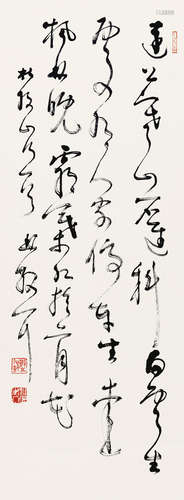 遠上寒山石徑斜白雲生
處有人家停車坐愛
楓林晚霜葉紅於二月花
杜牧山行